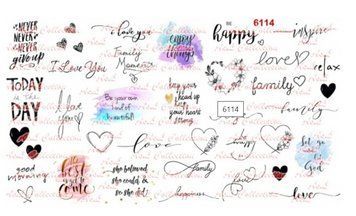 NEVER
NEVER
NEVER
give up
i love you
enjoy
things
be
happy
6114
inspire
I Love You
Family
Moments
love
relax
TODAY
is the
DAY
I love
you
Be your own
kind of
beautiful!
keep your
head up
keep your
heart strong
family
6114
family
good
morning
love
be
happy
let go
God
the
best
is yet to
come
she believed
she could &
so she did
family
happiness
love